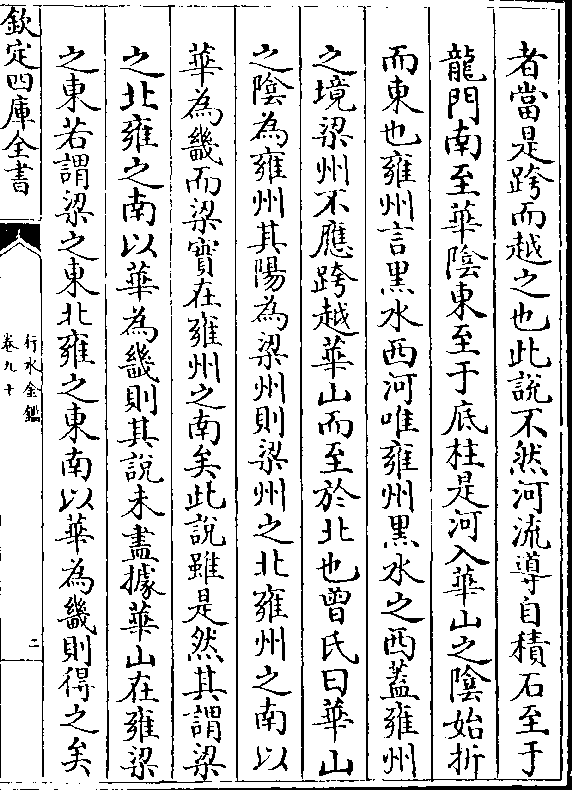 者當是跨而越之也此說不然河流導自積石至于
龍門南至華陰東至于底柱是河入華山之陰始折
而東也雍州言黒水西河唯雍州黒水之西蓋雍州
之境梁州不應跨越華山而至於北也曽氏曰華山
之陰為雍州其陽為梁州則梁州之北雍州之南以
華為畿而梁實在雍州之南矣此說雖是然其謂梁
之北雍之南以華為畿則其說未盡據華山在雍梁
之東若謂梁之東北雍之東南以華為畿則得之矣
欽定四庫全書
行水金鑑
卷九十
二